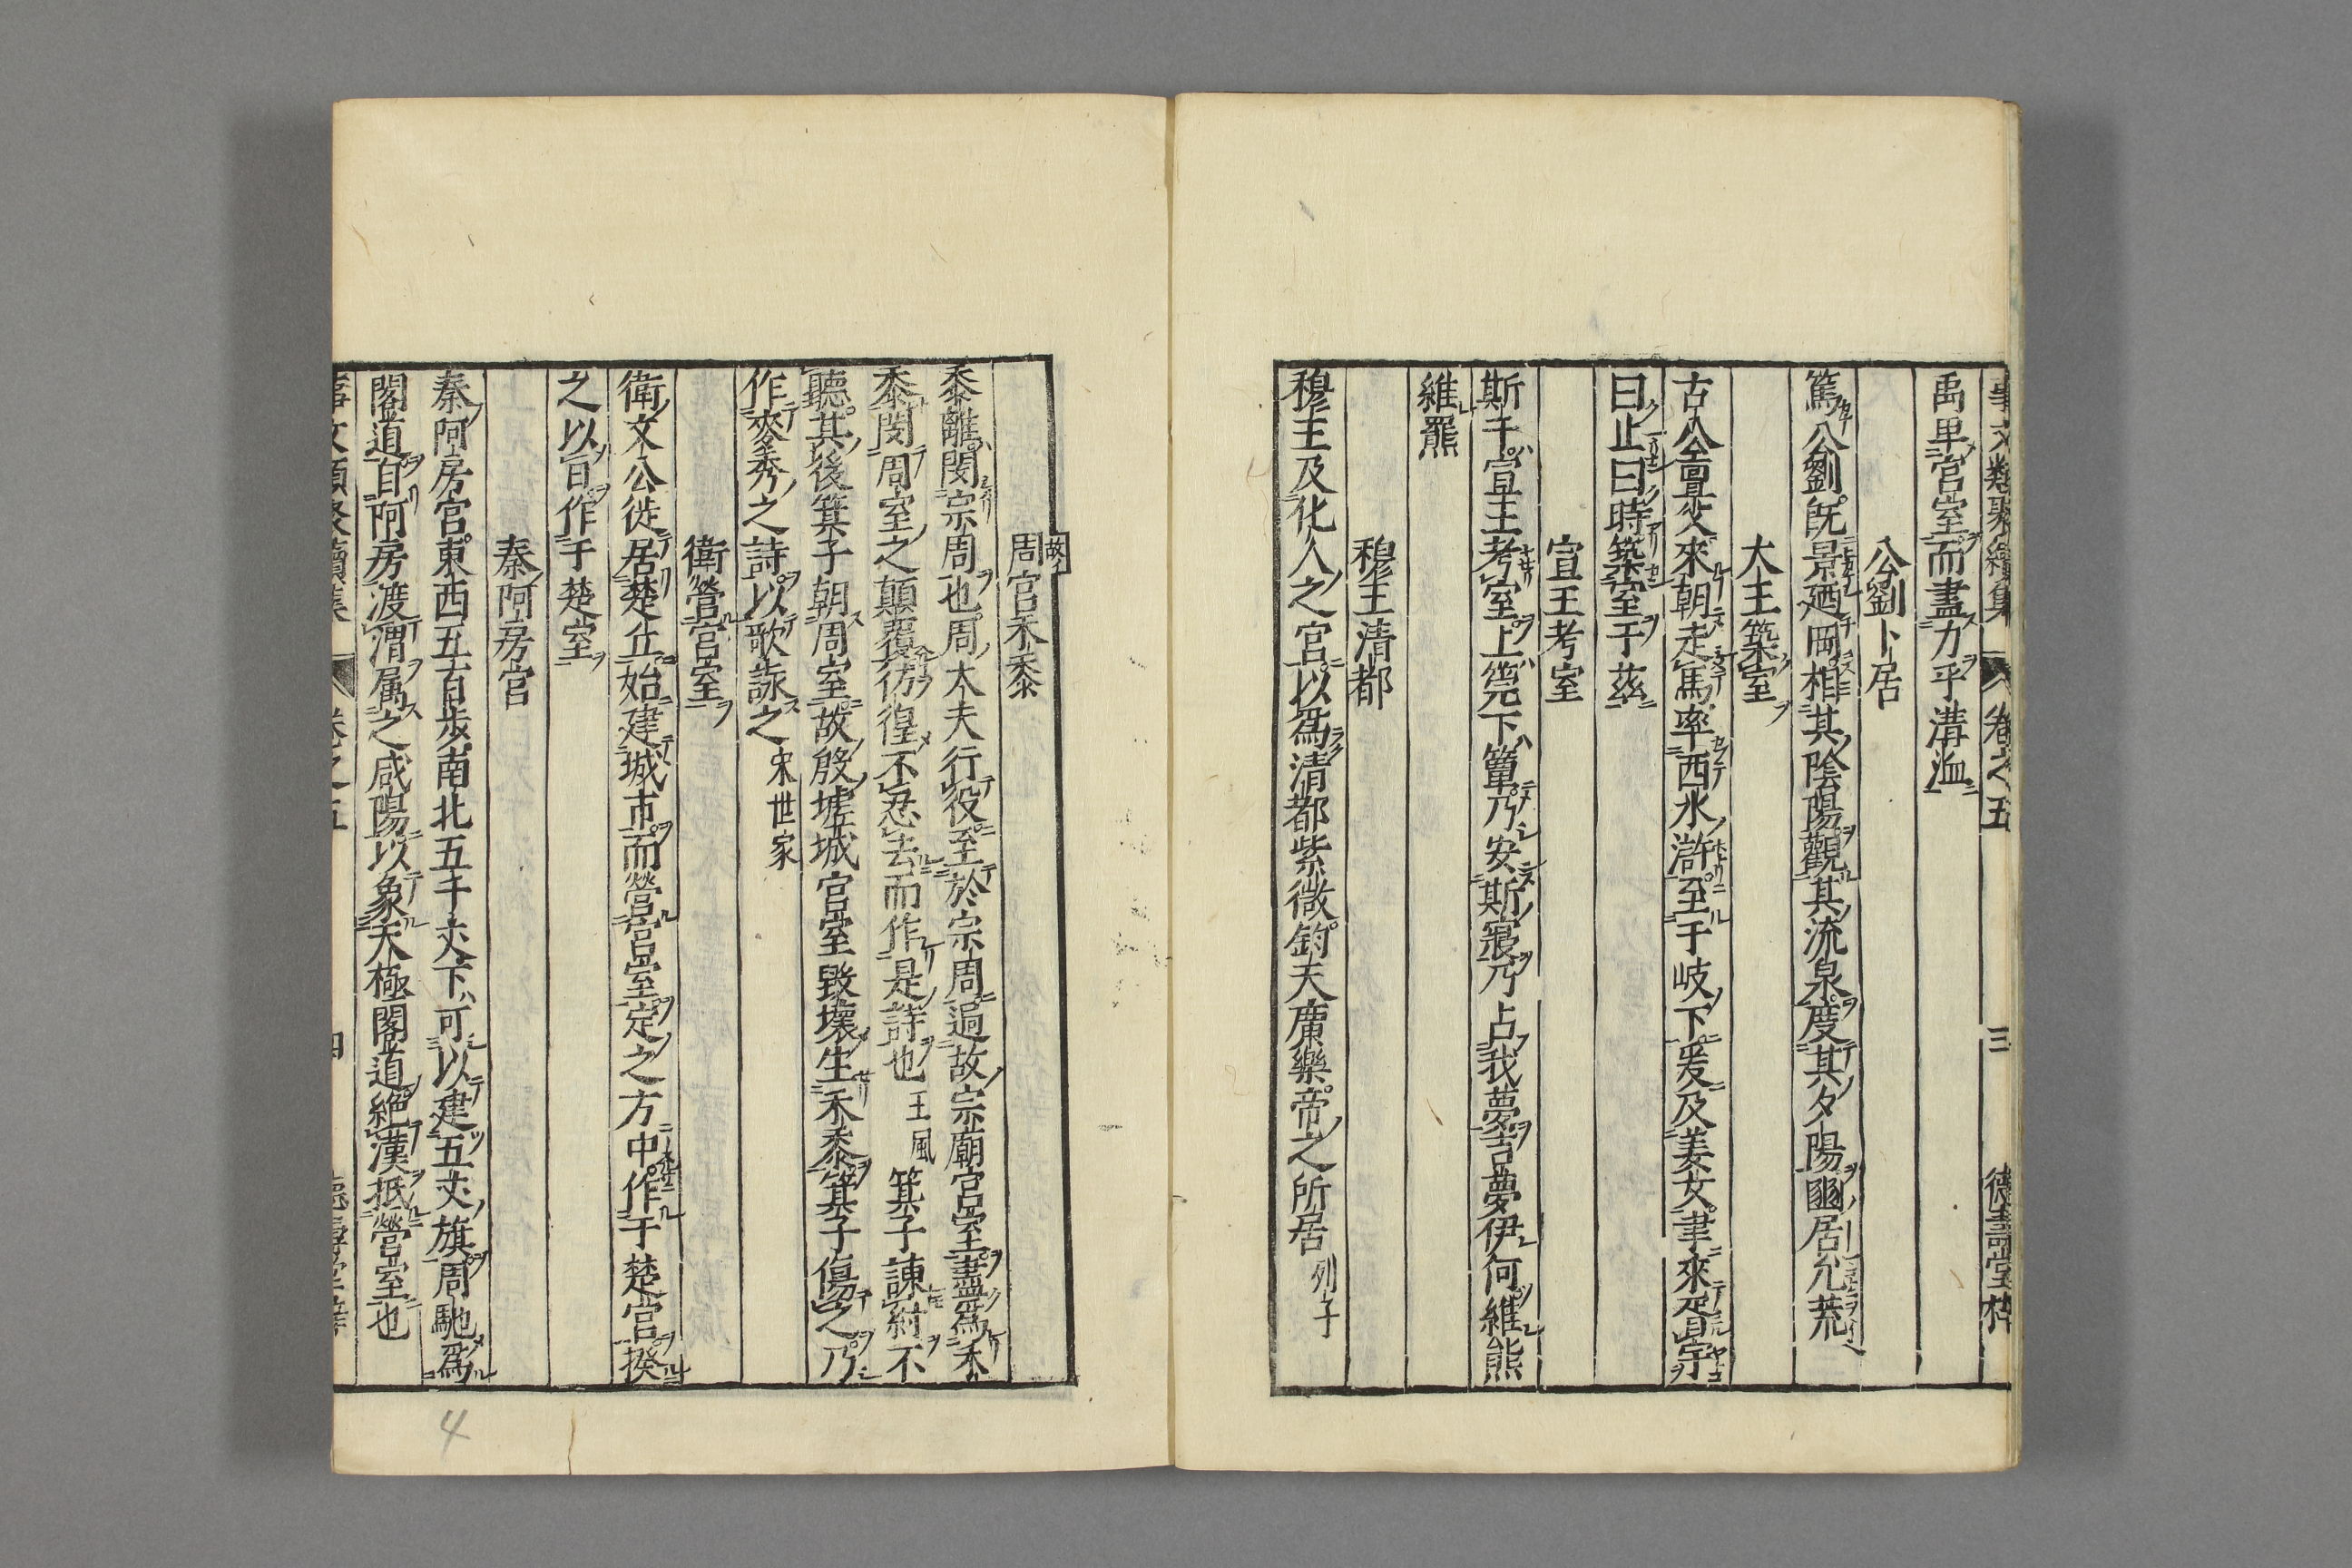 事文類聚續集 卷之五 三 德壽堂梓
禹卑宮室而盡力乎溝洫
公劉卜居
篤公劉既景迺岡相其陰陽觀其流泉度其夕陽豳居允荒
大王築室
古公亶父來朝走馬率西水滸至于岐下爰及姜女聿來胥宇
曰止曰時築室于茲
宣王考室
斯干宣王考室上筦下簟乃安斯寢乃占我夢吉夢伊何維熊
維羆
穆王清都
穆王及化人之宮以爲清都紫微鈞天廣樂帝之所居 列子
故
周宮禾黍
黍離閔宗周也周大夫行役至於宗周過故宗廟宮室盡爲禾
黍閔周室之顛覆彷徨不忍去而作是詩也 王風 箕子諫紂不
聽其後箕子朝周室故殷墟城宮室毀壞生禾黍箕子傷之乃
作麥秀之詩以歌詠之 宋世家
衛營宮室
衛文公徙居楚丘始建城市而營宮室定之方中作于楚宮揆
之以日作于楚室
秦阿房宮
秦阿房宮東西五百步南北五十丈下可以建五丈旗周馳爲
閣道自阿房渡渭属之咸陽以象天極閣道絶漢抵營室也
事文類聚續集 卷之五 四
4